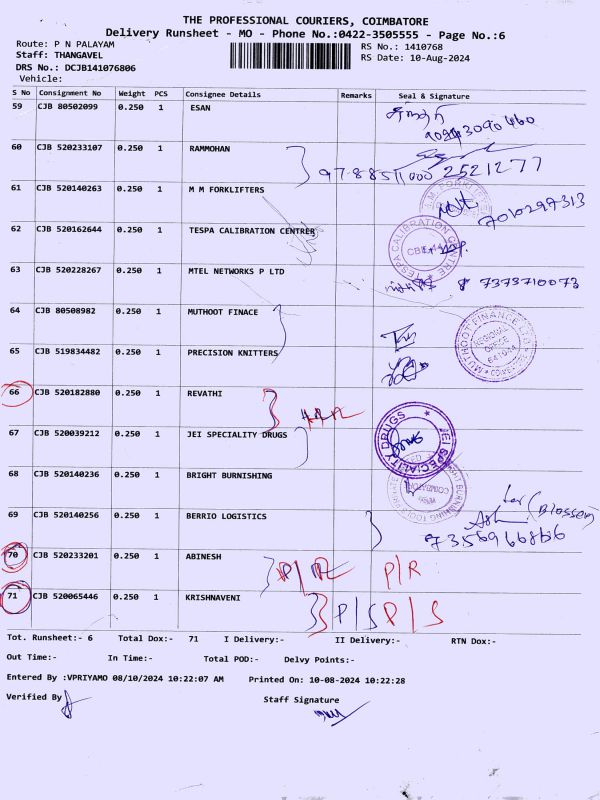 THE PROFESSIONAL COURIERS, COIMBATORE
Delivery Runsheet - MO - Phone No.:0422-3505555 - Page No.:6
Route: P N PALAYAM
RS No.: 1410768
Staff: THANGAVEL
RS Date: 10-Aug-2024
DRS No.: DCJB141076806
Vehicle:
S No Consignment No Weight PCS Consignee Details Remarks Seal & Signature
59 CJB 80502099 0.250 1 ESAN
60 CJB 520233107 0.250 1 RAMMOHAN
2521277
61 CJB 520140263 0.250 1 M M FORKLIFTERS
7010297313
62 CJB 520162644 0.250 1 TESPA CALIBRATION CENTRER
TESPA CALIBRATION CENTRE
63 CJB 520228267 0.250 1 MTEL NETWORKS P LTD
7373710073
64 CJB 80508982 0.250 1 MUTHOOT FINACE
MUTHOOT FINANCE LTD
65 CJB 519834482 0.250 1 PRECISION KNITTERS
66 CJB 520182880 0.250 1 REVATHI
67 CJB 520039212 0.250 1 JEI SPECIALITY DRUGS
JEI SPECIALITY DRUGS
68 CJB 520140236 0.250 1 BRIGHT BURNISHING
69 CJB 520140256 0.250 1 BERRIO LOGISTICS
(Blossem)
70 CJB 520233201 0.250 1 ABINESH P/R
71 CJB 520065446 0.250 1 KRISHNAVENI P/S P/S
Tot. Runsheet:- 6 Total Dox:- 71 I Delivery:- II Delivery:- RTN Dox:-
Out Time:- In Time:- Total POD:- Delvy Points:-
Entered By :VPRIYAMO 08/10/2024 10:22:07 AM Printed On: 10-08-2024 10:22:28
Verified By
Staff Signature